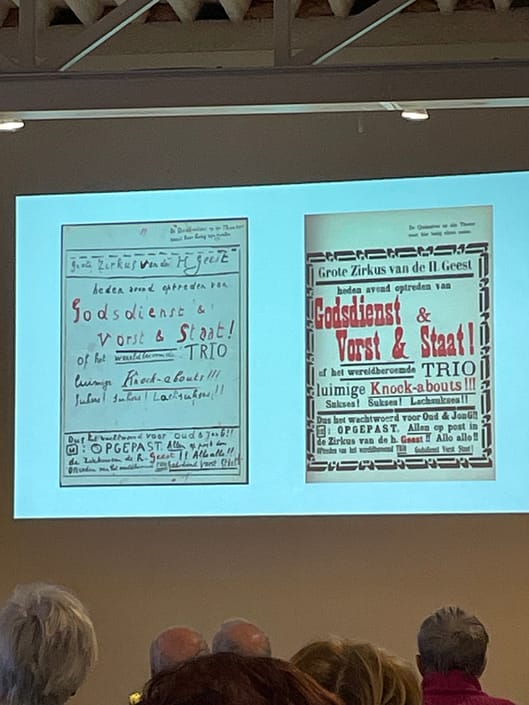 Grote Zirkus van de H Geest
heden avond optreden van
Godsdienst &
Vorst & Staat!
of het wereldberoemde TRIO
luimige Knock-abouts!!!
Sukses! Sukses! Lachsukses!!
Dus het wachtwoord voor oud & jong!!
OPGEPAST. Allen op post in
de Zirkus van de h. Geest!! Allo allo!!
Grote Zirkus van de H. Geest
heden avond optreden van
Godsdienst &
Vorst & Staat!
of het wereldberoemde TRIO
luimige Knock-abouts!!!
Sukses! Sukses! Lachsukses!!
Dus het wachtwoord voor Oud & JonG!!
: OPGEPAST. Allen op post in
de Zirkus van de h. Geest!! Allo allo!!
Optreden van het wereldberoemd TRIO Godsdienst Vorst Staat!